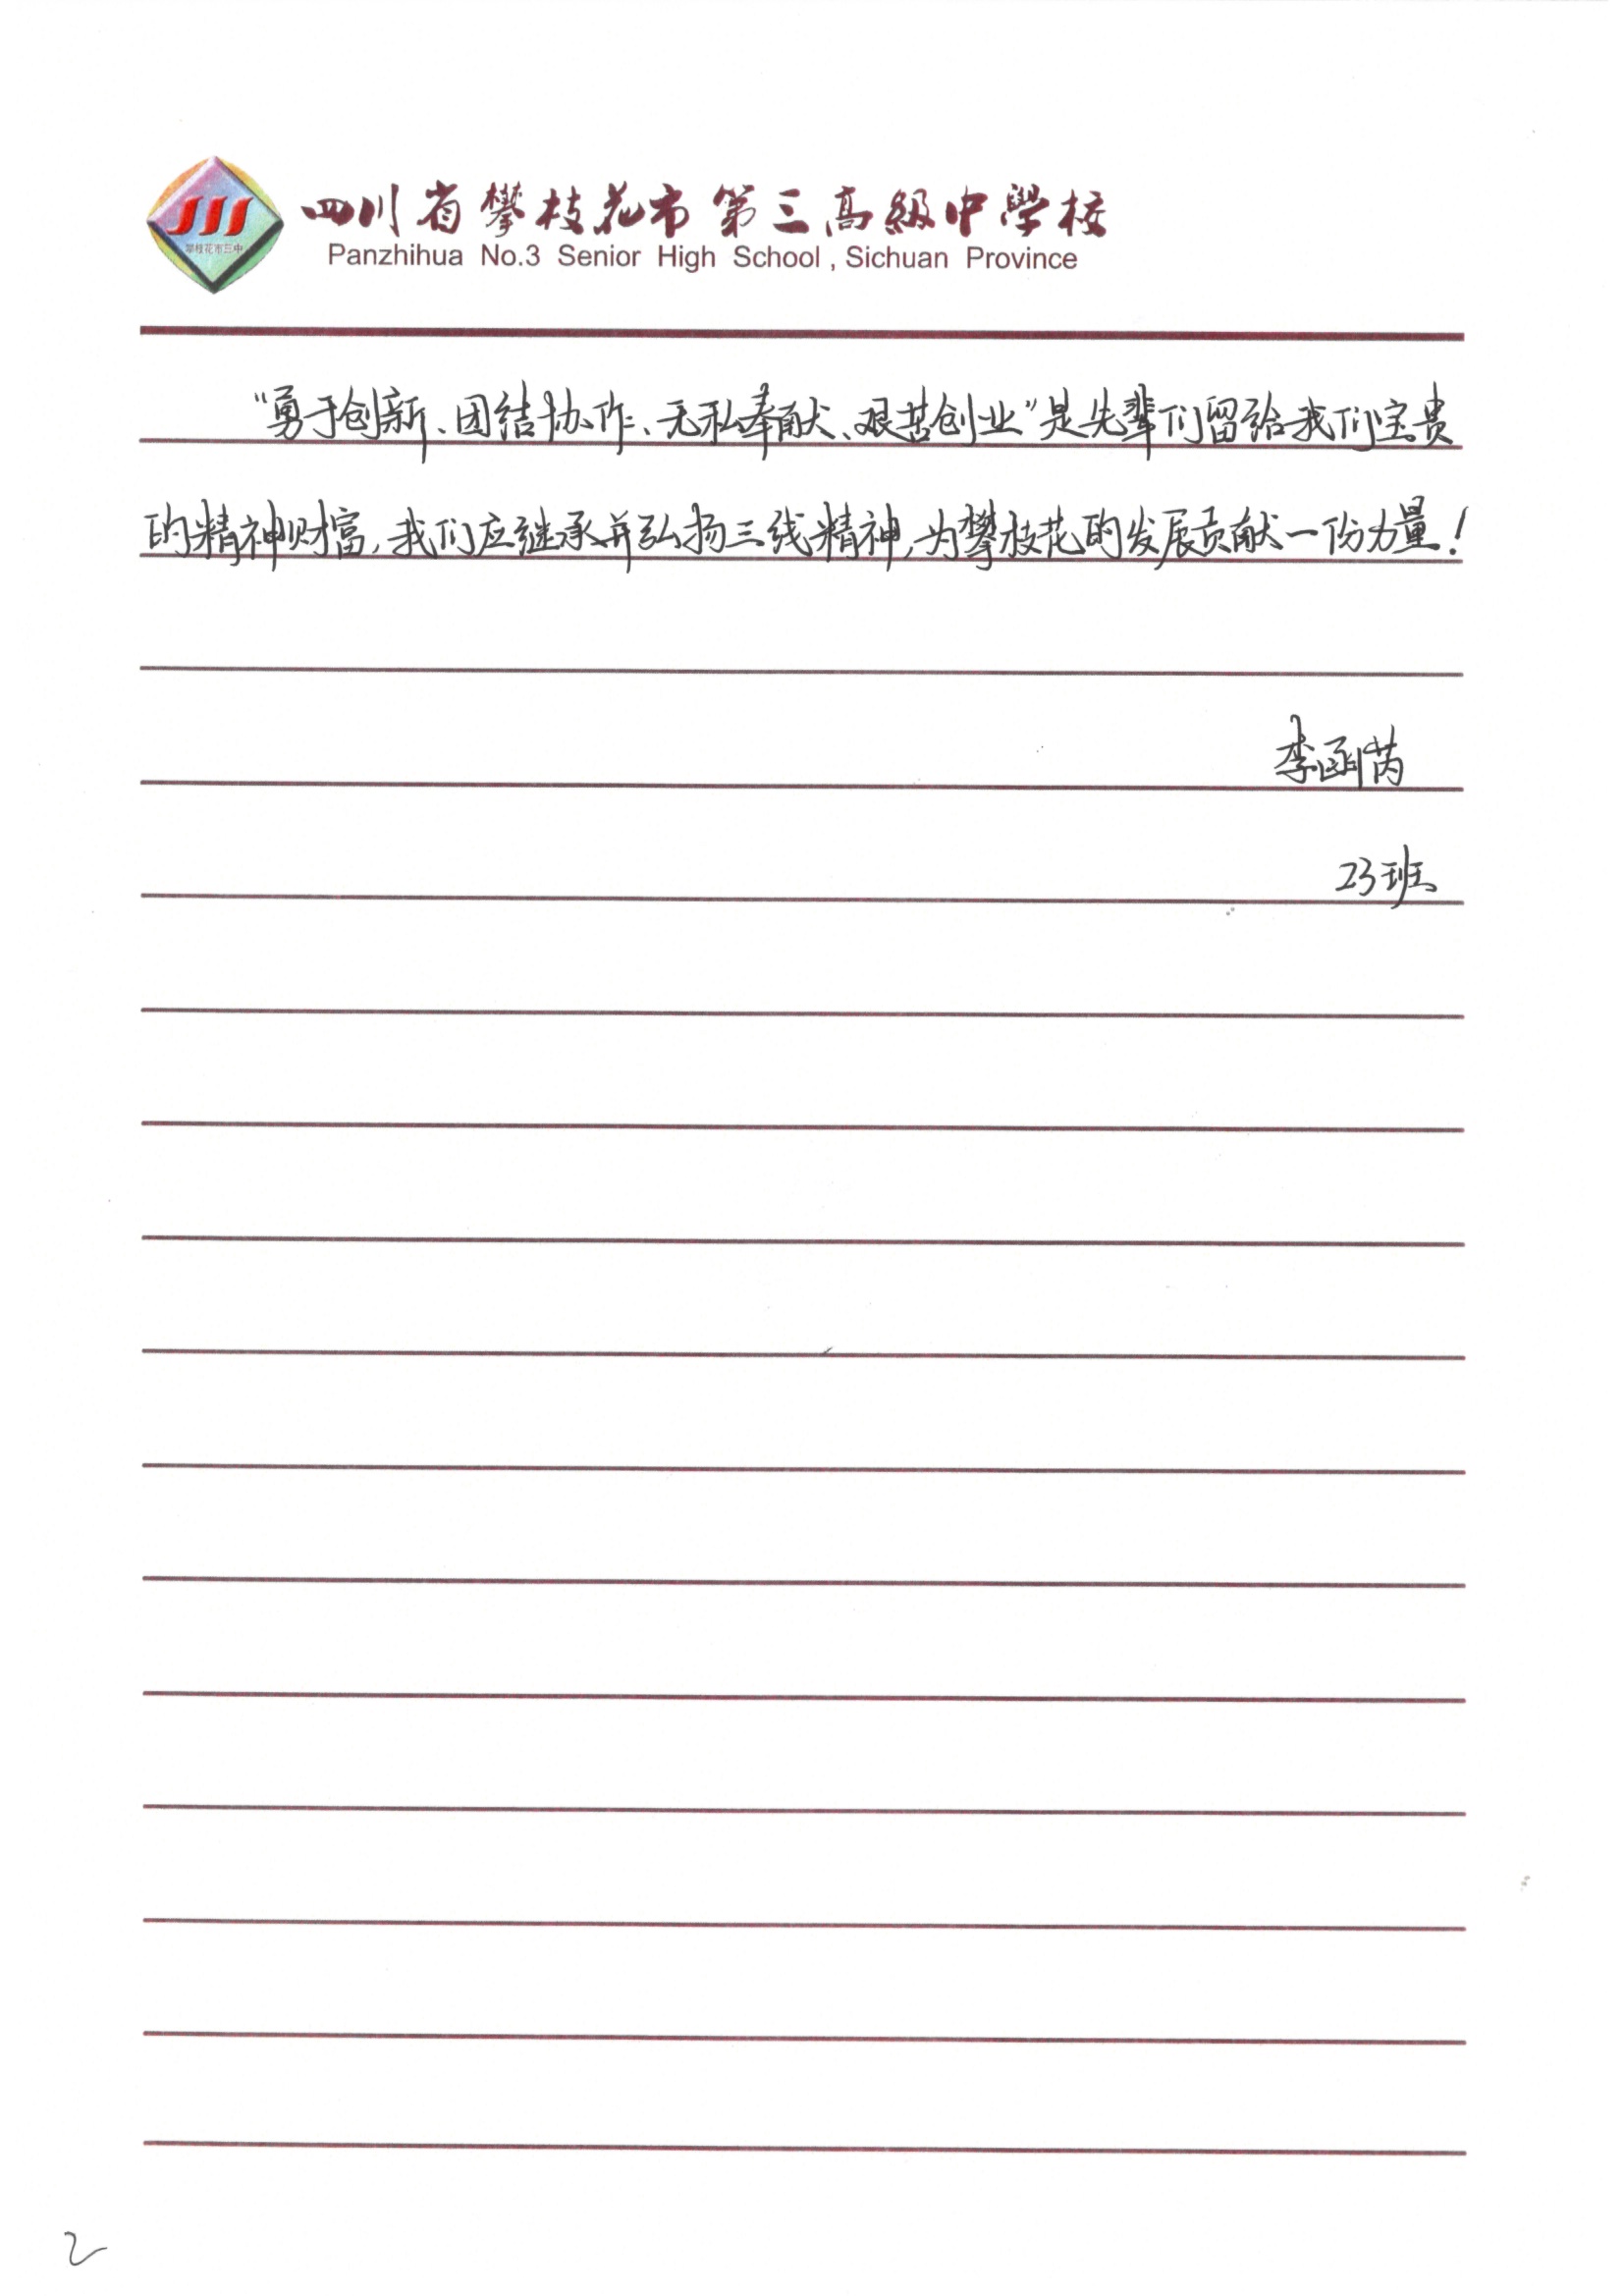 四川省攀枝花市第三高級中學校
攀枝花市三中
Panzhihua No.3 Senior High School , Sichuan Province
“勇于创新、团结协作、无私奉献、艰苦创业”是先辈们留给我们宝贵
的精神财富,我们应继承并弘扬三线精神,为攀枝花的发展贡献一份力量!
李函芮
23班
2